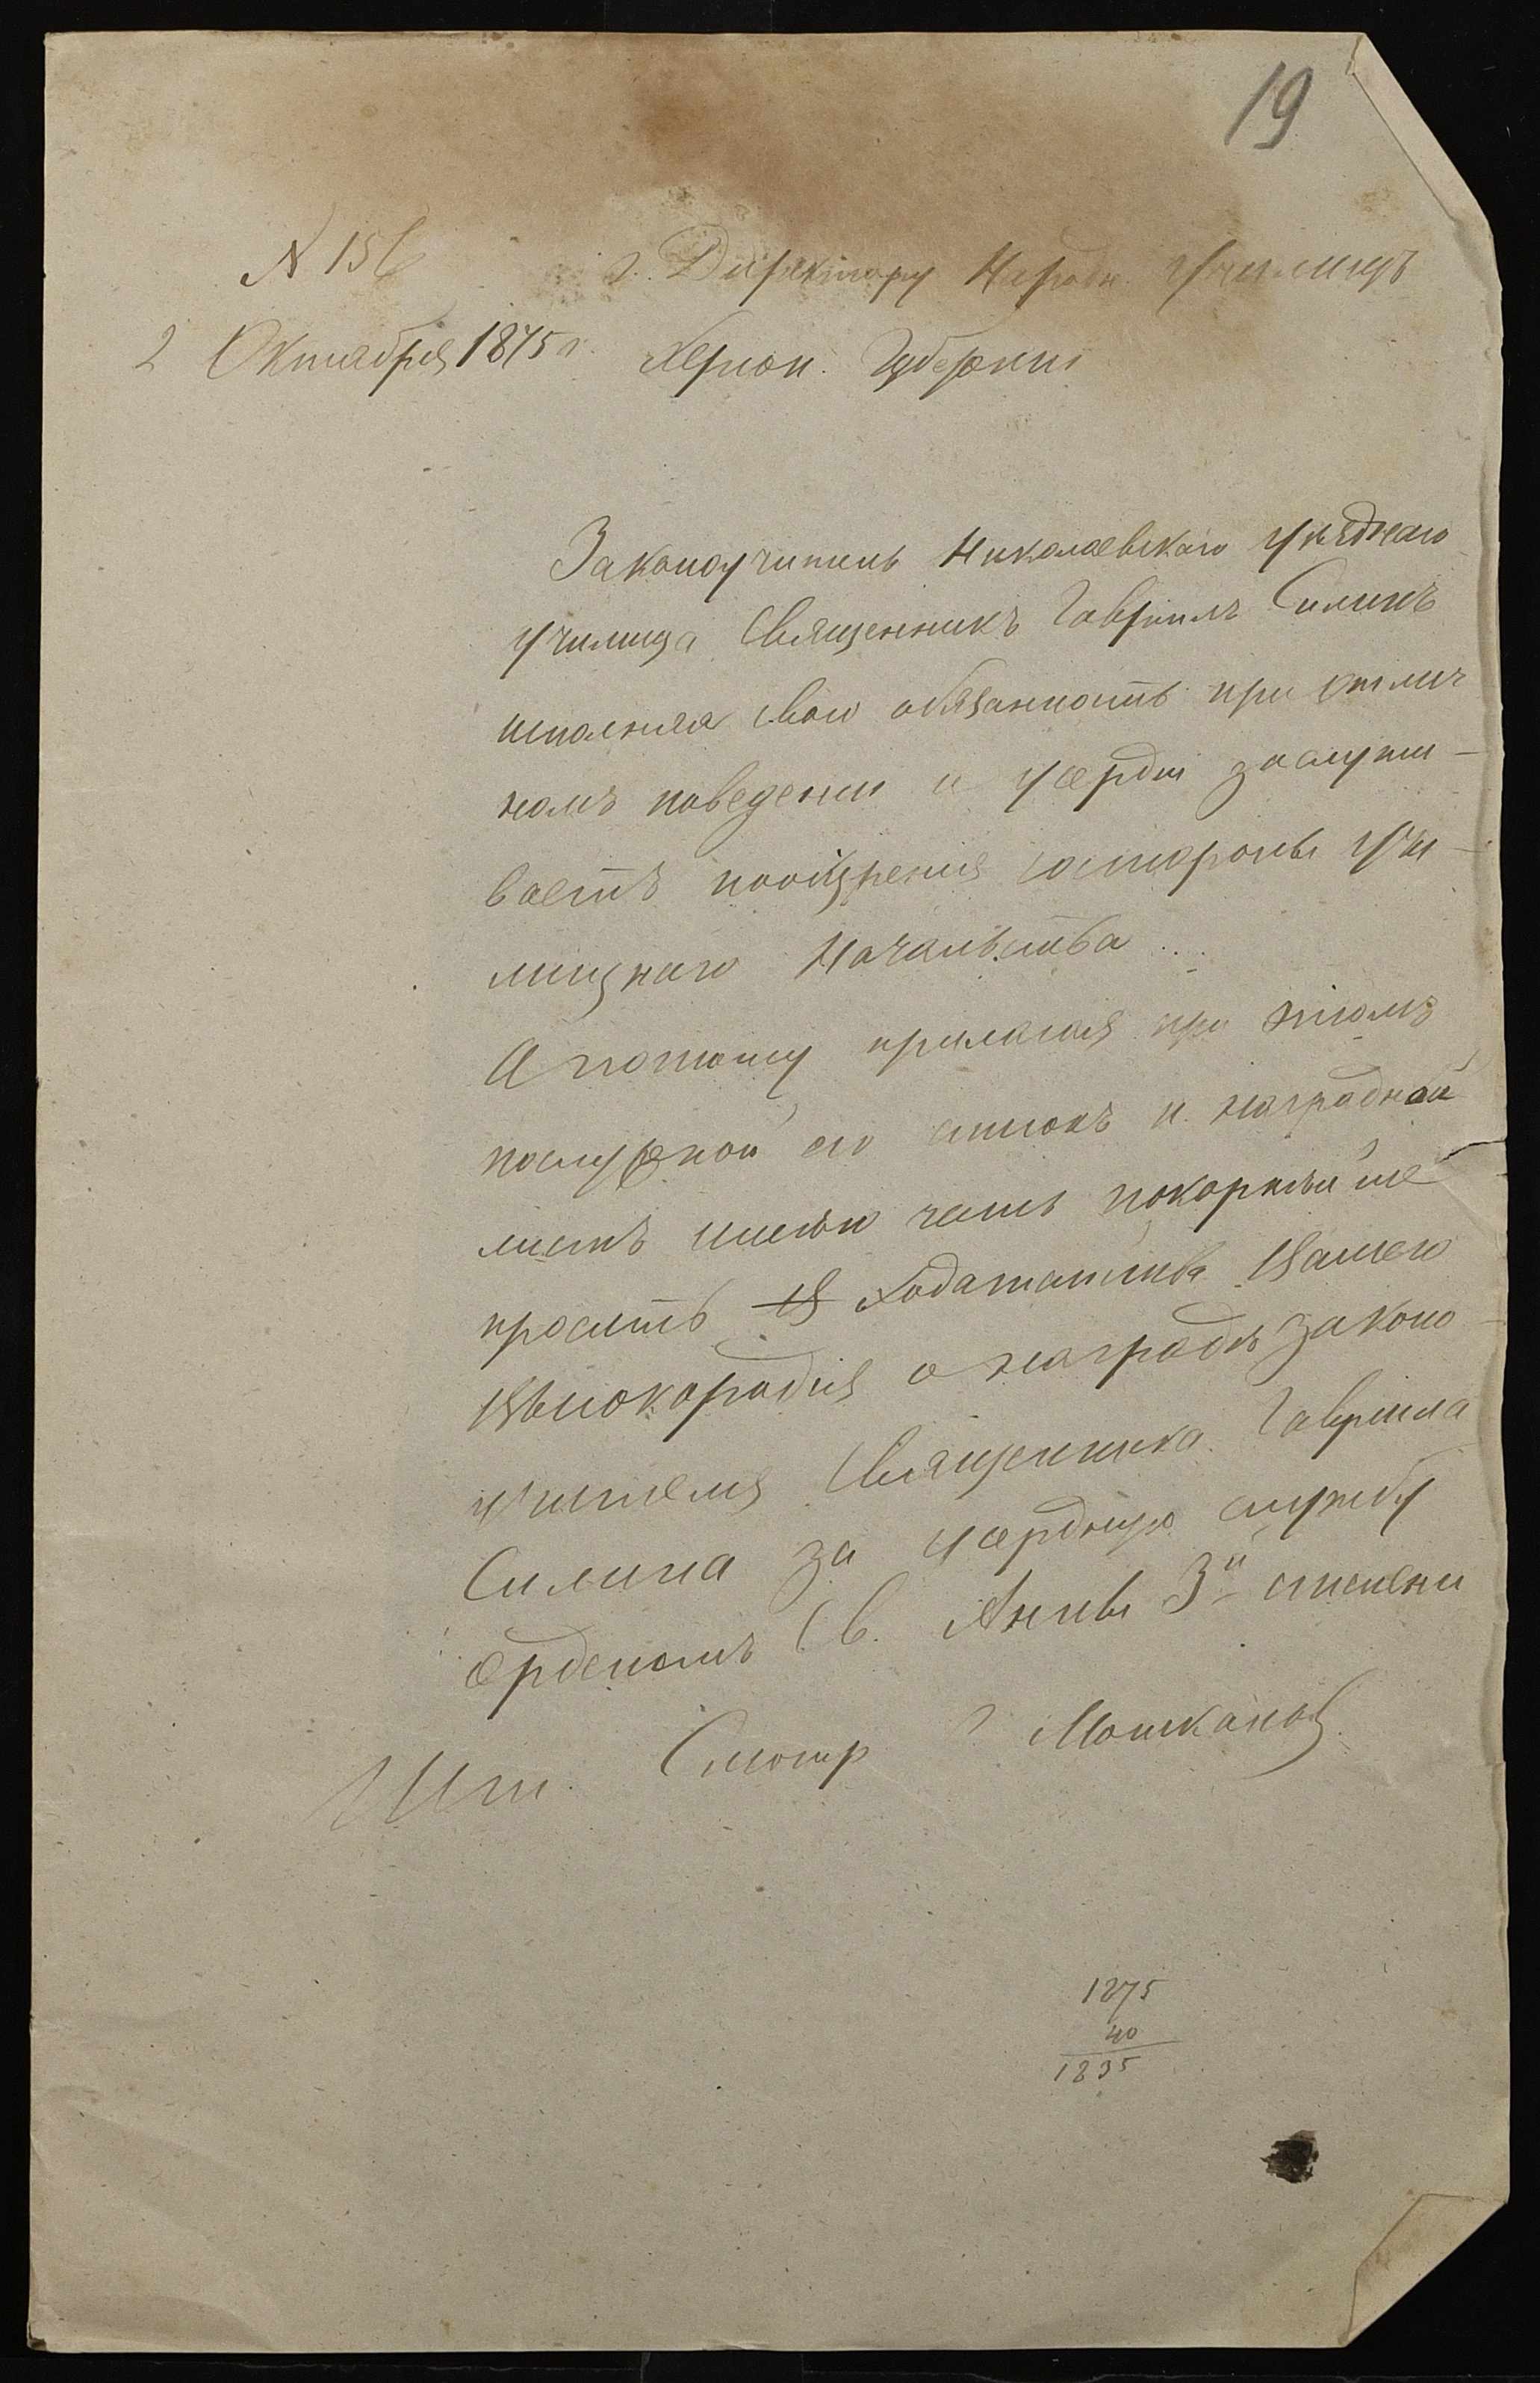 19
N 156 г. Директору Народн. Училищъ
2 Октября 1875 г. Херсон. Губерніи
Законоучитель Николаевскаго Уѣзднаго
Училища Священникъ Гавріилъ Силинъ
исполняя свою обязанность при отлич
номъ поведеніи и усердіи заслужи-
ваетъ поощренія состороны Учи-
лищнаго Начальства...
А потому прилагая при этомъ
послужной его списокъ и наградной
листъ имѣю честь покорнѣйше
просить В Ходатайства Вашего
Высокородія о наградѣ законо-
учителя Священника Гавріила
Силина за усердную службу
орденомъ Св. Анны 3й степени
Шт. Смотр Мошканов
1875
40
1835